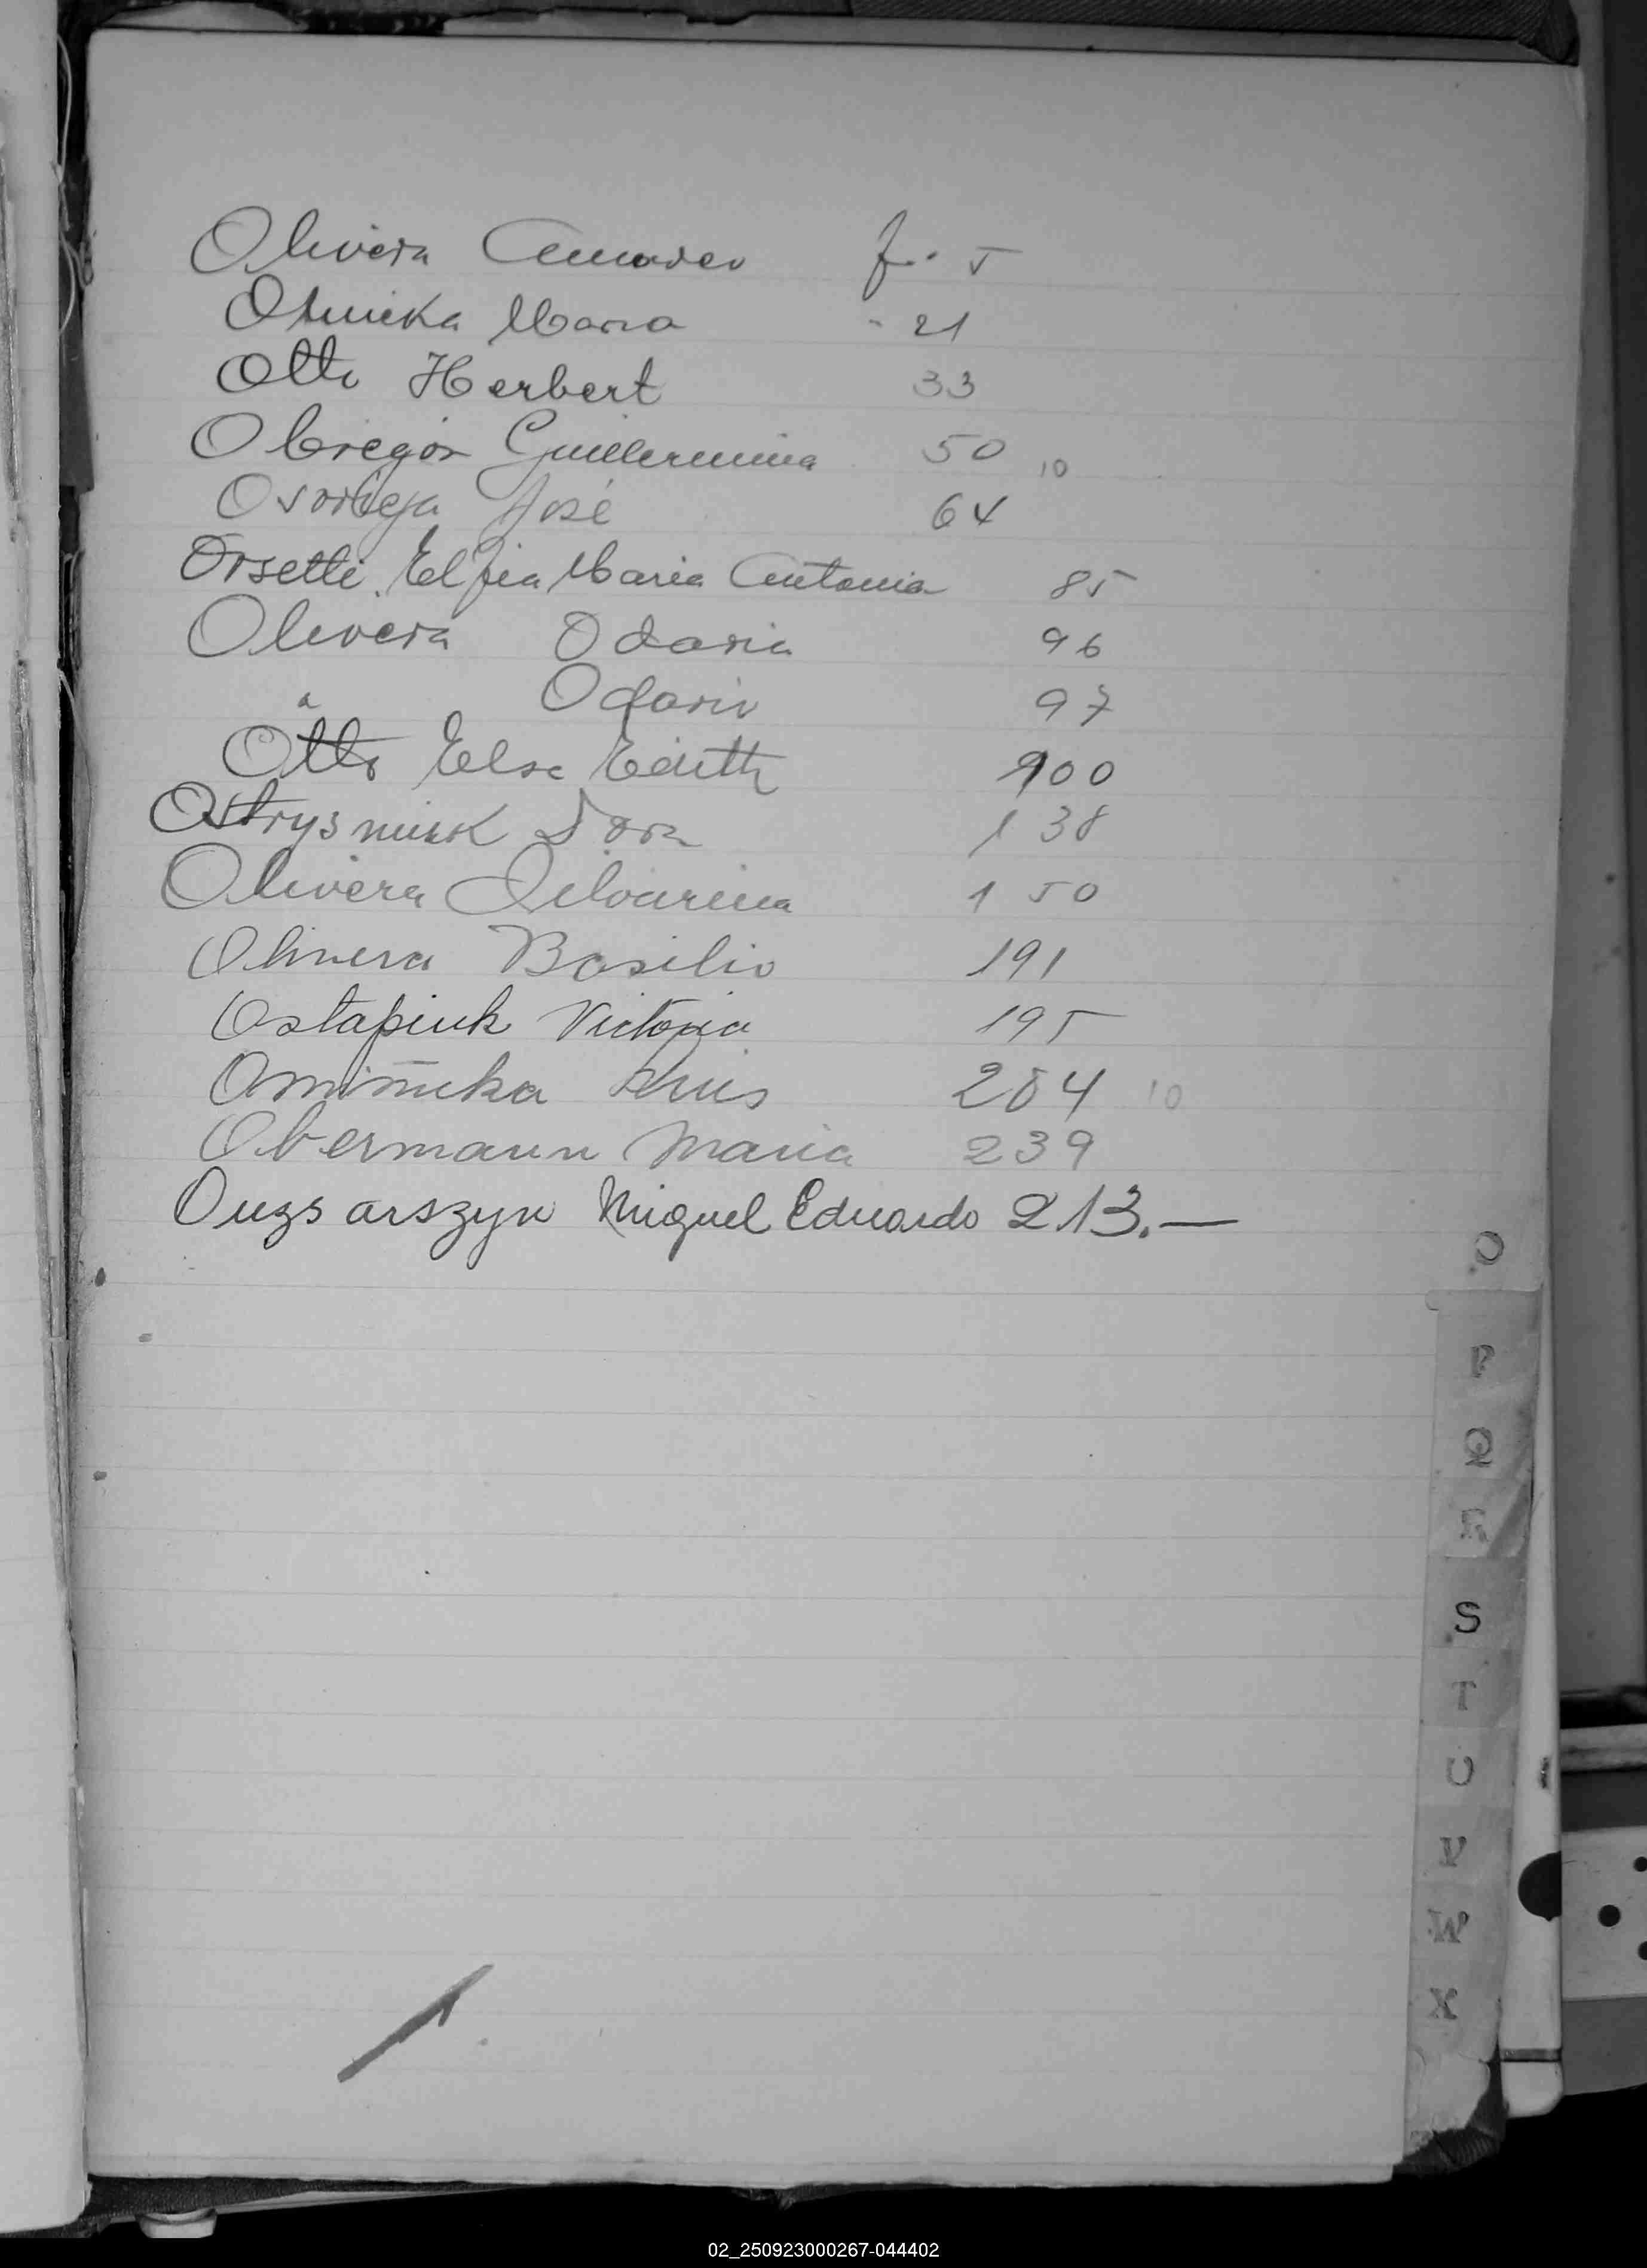 Olivera Amadeo f. 5
Olunika Maria " 21
Otto Herbert 33
Obregón Guillermina 50 10
José 64
Orsetti Elfia Maria Antonia 85
Olivera Odaria 96
" Odario 97
Otto Elsa Edith 100
Ostrysniuk Dora 138
Olivera 150
Olivera Basilio 191
Ostapiuk Victoria 195
Luis 204 10
Obermann Maria 239
Ouzsarszyn Miguel Eduardo 213.—
O
P
Q
R
S
T
U
V
W
X
02_250923000267-044402